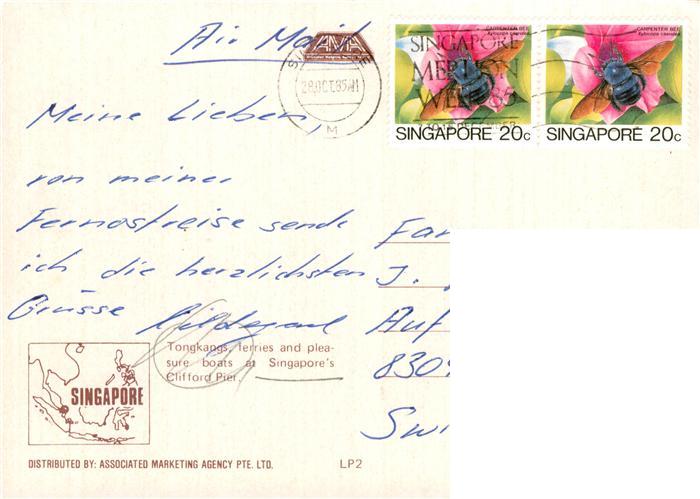 Air Mail
AMA
28 OCT 85
M
SINGAPORE
MERLION
WEEK '85
DECEMBER
CARPENTER BEE
SINGAPORE 20c
CARPENTER BEE
SINGAPORE 20c
Meine Lieben,
von meiner
Fernostreise sende
ich die herzlichsten
Grüsse Hildegard
Fam
J.
Auf
830
Swi
Tongkangs, ferries and plea-
sure boats at Singapore's
Clifford Pier.
SINGAPORE
DISTRIBUTED BY: ASSOCIATED MARKETING AGENCY PTE. LTD. LP2